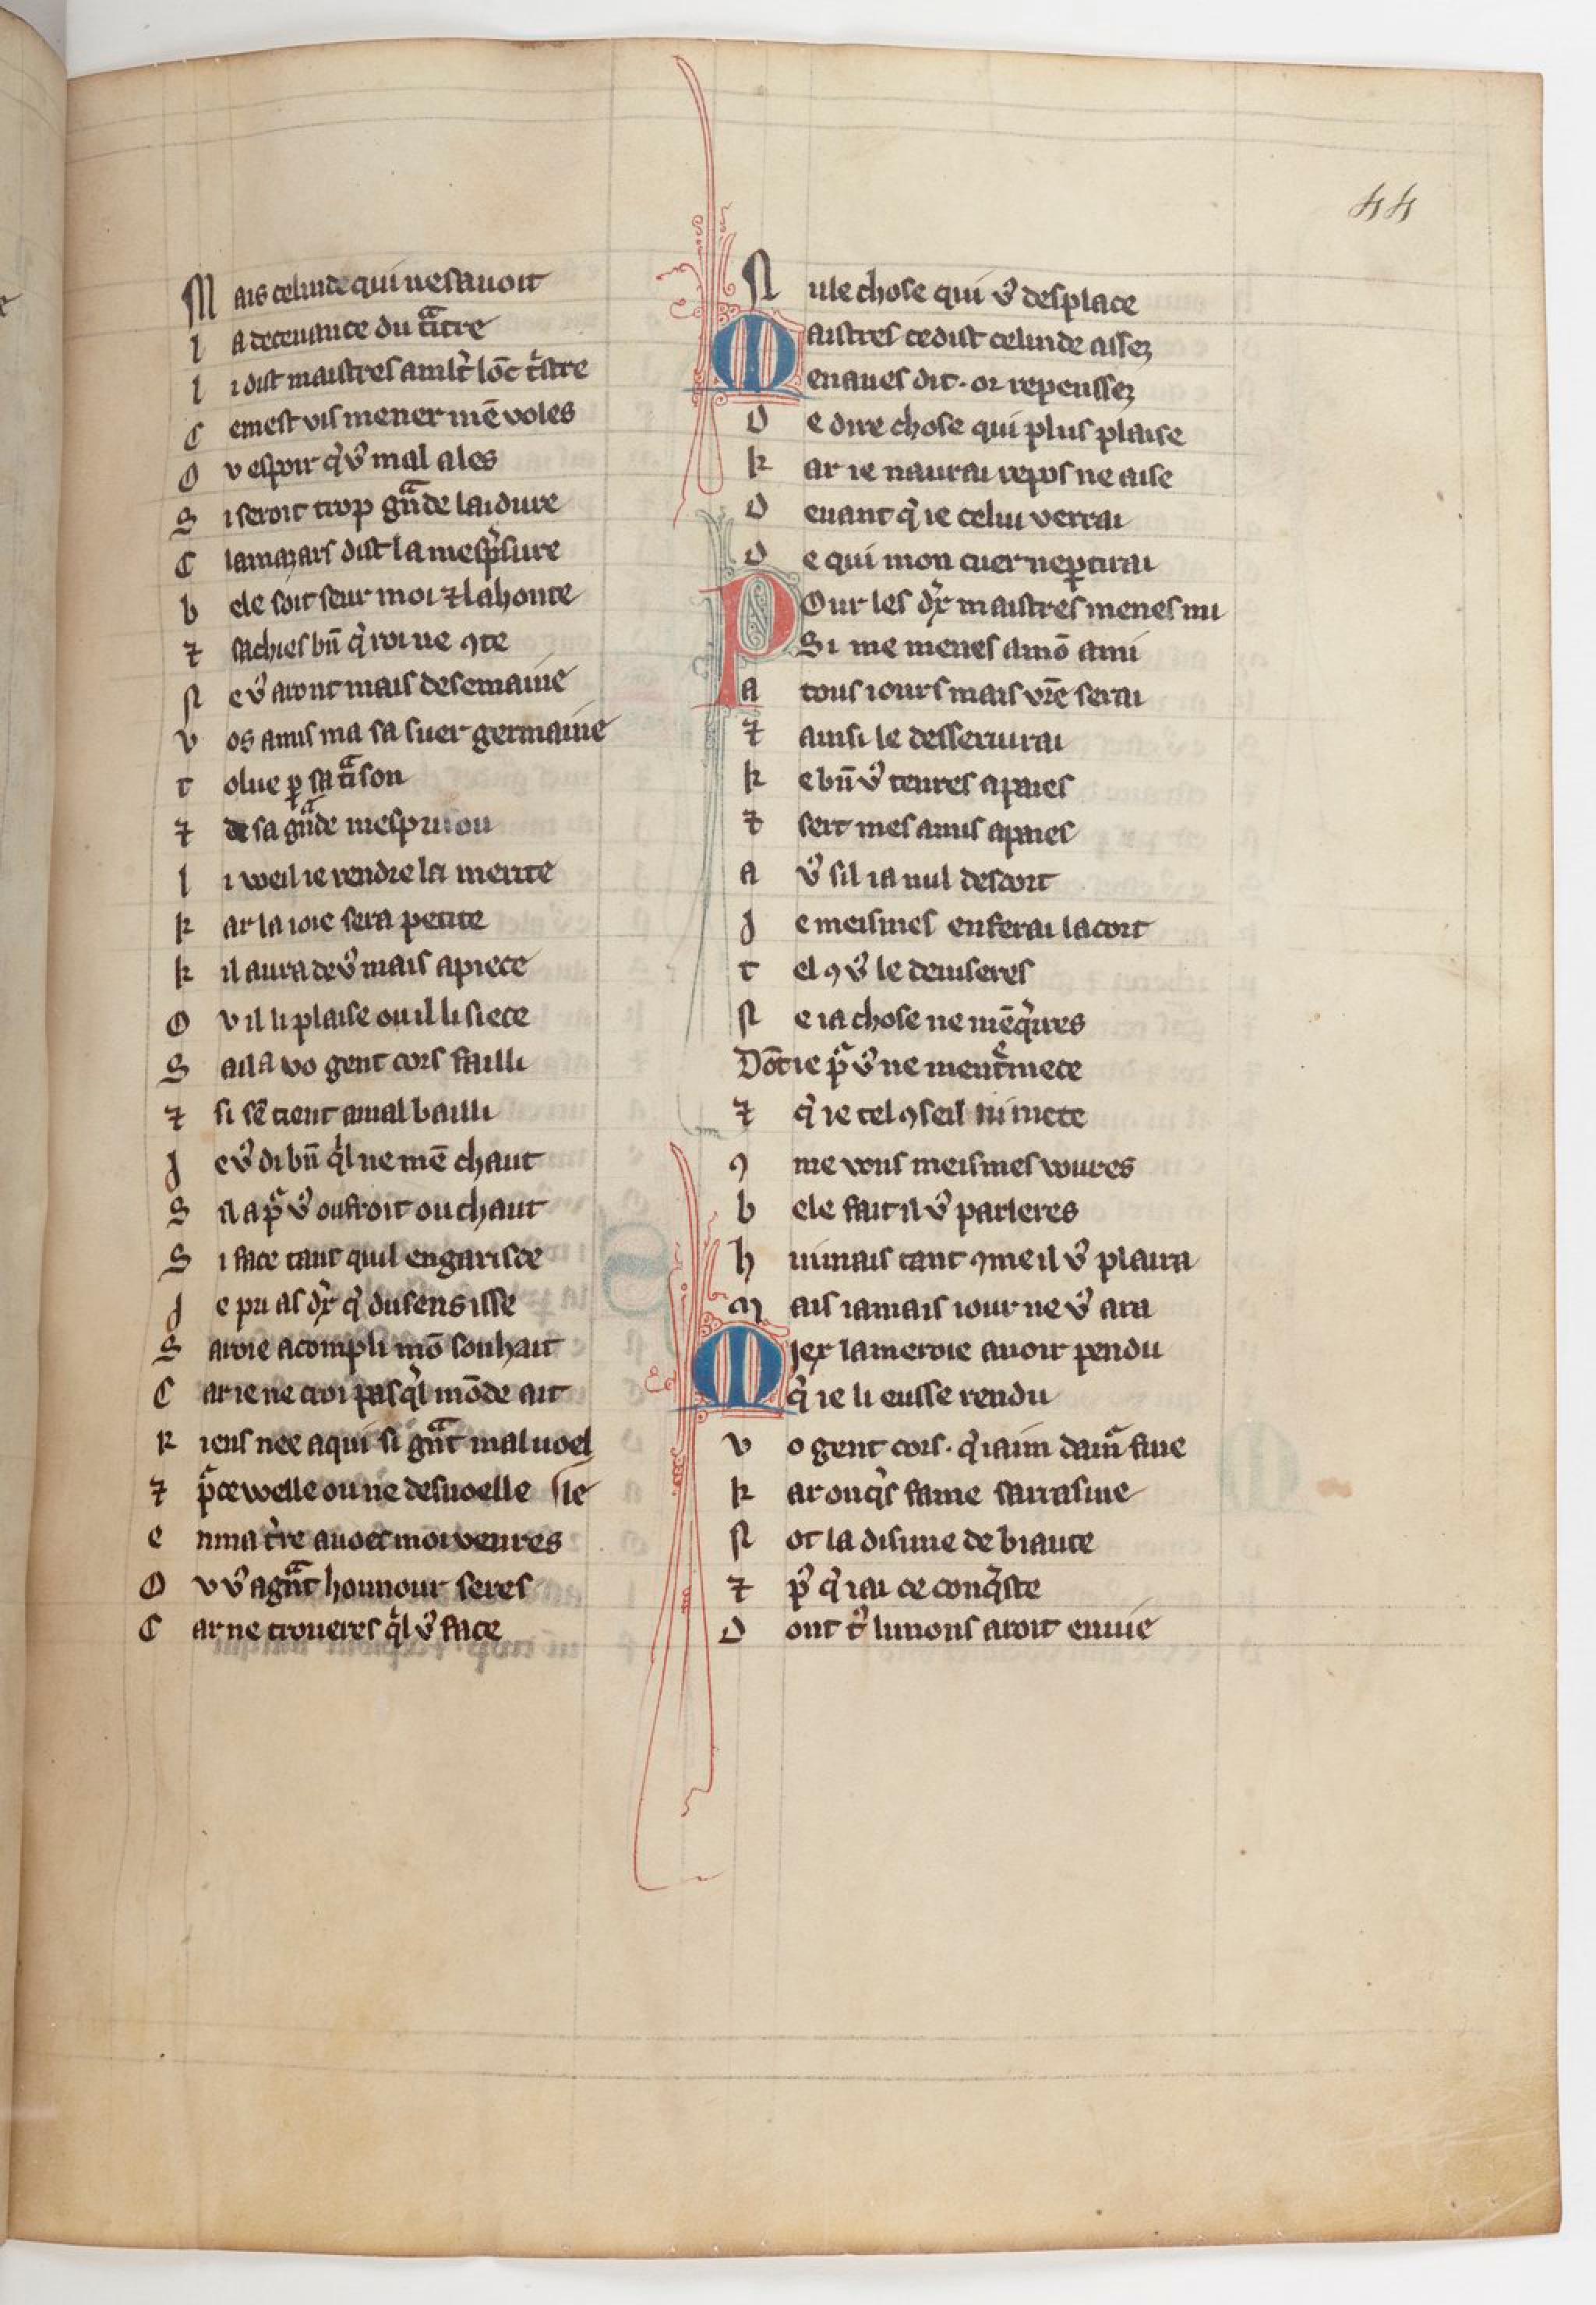 44
Mais celinde qui ne sauoit
la deceuance du tͣitre
li dist maistres a mlt̓ lōc t̓stre
Cemest vis mener mē voles
Ov espoir q̓ vͦ mal ales
Si seroit trop gͣnde laidure
Clamazars dist la mesp̓sure
bele soit seur moi ⁊ la honte
⁊ sachies bn̄ q̓ roi ne ꝯte
Ne vͦ aront mais de semaine
vos amis ma sa suer germaine
tolue ꝑ sa tͣison
⁊ de sa gͣnde mesprison
li weil ie rendre la merite
kar la ioie sera petite
kil aura de vͦ mais apiece
Ov il li plaise ou il li siece
Sail a vo gent cors failli
⁊ si sē tient a mal bailli
Je vͦ di bn̄ qͥl ne mē chaut
Sil a pͬ vͦ ou froit ou chaut
Si face tant quil engarisce
Je pri as dx̓ q̓ du sens isse
Saroie acompli mō souhait
Car ie ne croi pas qͥl mōde ait
Riens nee a qui si gͣnt mal uoel
⁊ pͬ ce welle ou ne desuoelle sie
enma t̓re auoec moi venres
Ov vͦ a gͣnt honnour seres
Car ne troueres qͥl vͦ face
Nule chose qui vͦ desplace
Maistres ce dist celinde assez
Menaues dit · or repenssez
De dire chose qui plus plaise
kar ie naurai repos ne aise
Deuant q̓ ie celui verrai
De qui mon cuer ne ꝑtirai
POur les dx̓ maistres menes mi
Si me menes a mō ami
a tous iours mais vr̄e serai
⁊ ainsi le desseruirai
ke bn̄ vͦ tenres a paies
⁊ sert mes amis apaies
a vͦ sil i a nul descort
Je meismes en ferai lacort
tel ꝯ vͦ le deuiseres
Ne ia chose ne mē q̓rres
Dōt ie pͬ vͦ ne mentͤmete
⁊ q̓ ie tel ꝯseil ni mete
ꝯme vous meismes voures
bele fait il vͦ parleres
huimais tant ꝯme il vͦ plaira
Mais iamais iour ne vͦ ara
Miex lameroie auoir pendu
q̓ ie li eusse rendu
vo gent cors · q̓ iaim damͬ fine
kar onq̓s fame sarrasine
Not la disime de biaute
⁊ pͦ q̓ iai ce conq̓ste
Dont tͦ li mons aroit enuie